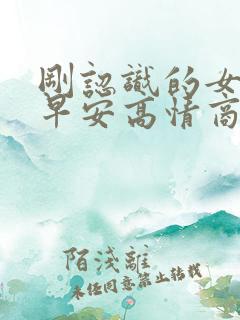 剛認識的女
早安高情商
陌淺離
未經同意禁止轉載